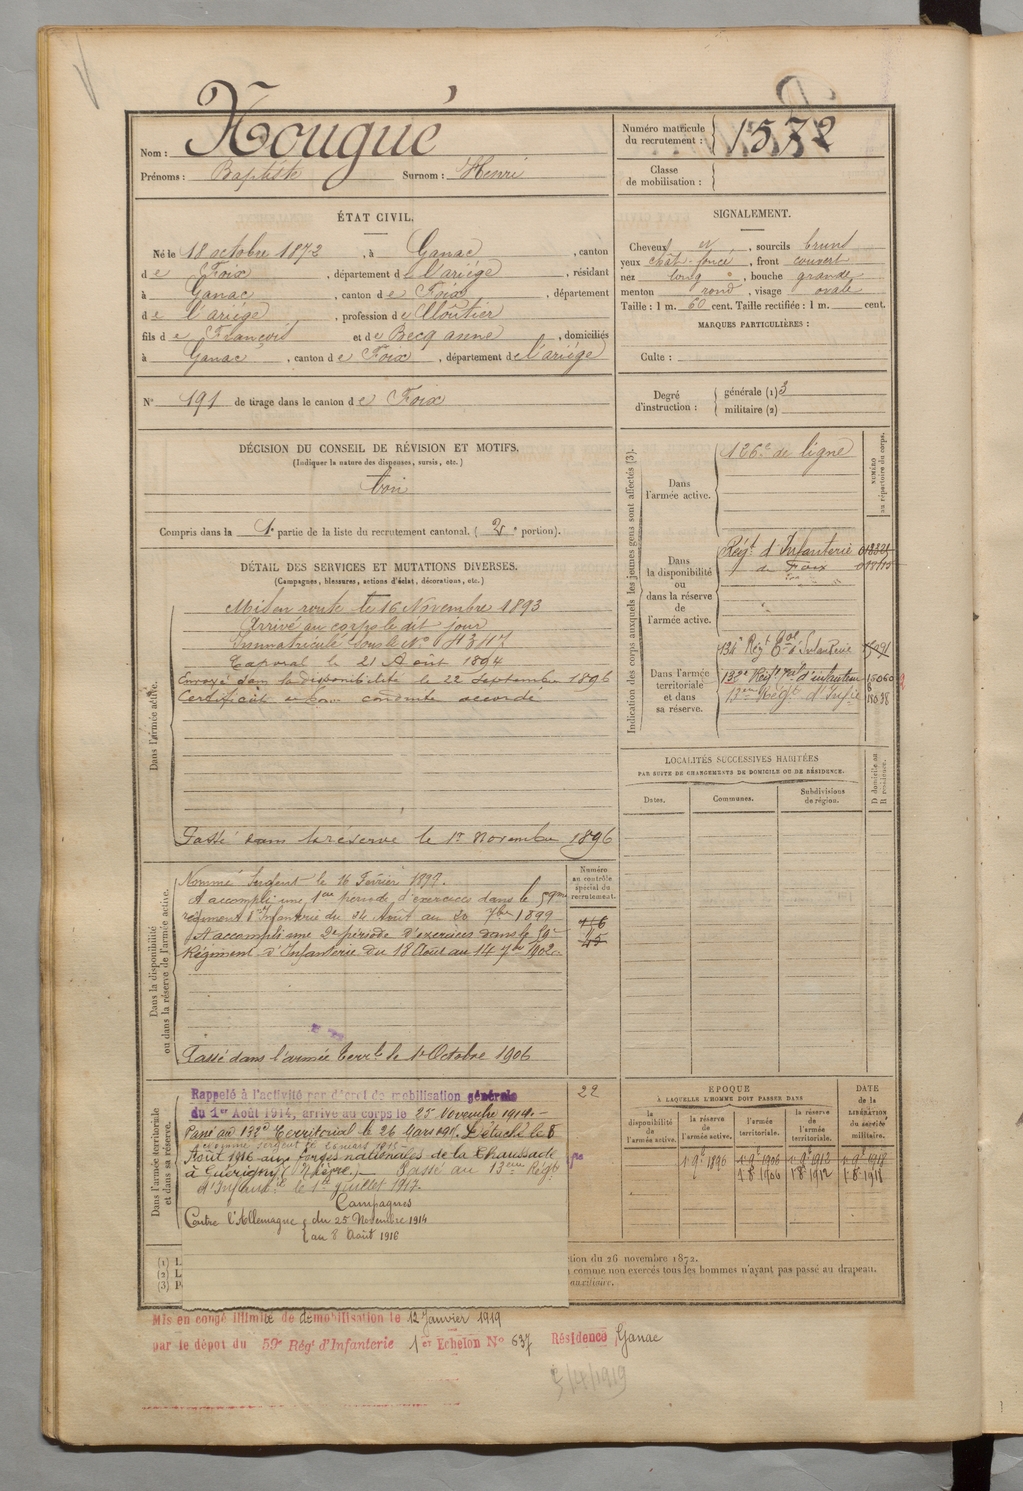 Nom : Nougué
Prénoms : Baptiste Surnom : Henri
Numéro matricule du recrutement : 1572
Classe de mobilisation :
ÉTAT CIVIL.
Né le 18 octobre 1872, à Ganac, canton
de Foix, département de l'ariége, résidant
à Ganac, canton de Foix, département
de l'ariége, profession de Cloutier
fils de François et de Becq anne, domiciliés
à Ganac, canton de Foix, département de l'ariége
N° 191 de tirage dans le canton de Foix
SIGNALEMENT.
Cheveux et, sourcils bruns
yeux chât. foncé, front couvert
nez long, bouche grande
menton rond, visage ovale
Taille : 1 m. 60 cent. Taille rectifiée : 1 m. cent.
MARQUES PARTICULIÈRES :
Culte :
Degré d'instruction : générale (1) 3
militaire (2)
DÉCISION DU CONSEIL DE RÉVISION ET MOTIFS.
(Indiquer la nature des dispenses, sursis, etc.)
bon
Compris dans la 1e partie de la liste du recrutement cantonal. (2e portion).
DÉTAIL DES SERVICES ET MUTATIONS DIVERSES.
(Campagnes, blessures, actions d'éclat, décorations, etc.)
Dans l'armée active.
Mis en route le 16 Novembre 1893
Arrivé au corps le dit jour
Immatriculé sous le N°
Caporal le 21 Août 1894
Envoyé dans la disponibilité le 22 Septembre 1896
Certificat de bonne conduite accordé
Passé dans la réserve le 1er Novembre 1896
Dans la disponibilité ou dans la réserve de l'armée active.
Numéro au contrôle spécial du recrutement.
Nommé Sergent le 16 Février 1897.
A accompli une 1ère période d'exercices dans le 59me
régiment d'Infanterie du 24 Août au 20 7bre 1899
A accompli une 2e période d'exercices dans le 59e
Régiment d'Infanterie du 18 Août au 14 7bre 1902.
Passé dans l'armée terrle le 1er Octobre 1906
Dans l'armée territoriale et dans sa réserve.
22
Rappelé à l'activité par décret de mobilisation générale
du 1er Août 1914, arrivé au corps le 25 Novembre 1914.
Passé au 132e Territorial le 26 Mars 191. Détaché le 8
Août 1916 aux forges nationales de la Chaussade
à Guérigny (Nièvre). Passé au 13eme Régt
d'Infanterie le 1er Juillet 1917.
Campagnes
Contre l'Allemagne du 25 Novembre 1914
au 8 Août 1916
Indication des corps auxquels les jeunes gens sont affectés (3).
NUMÉRO au répertoire du corps.
Dans l'armée active. 126e de ligne
Dans la disponibilité ou dans la réserve de l'armée active.
Régt d'Infanterie
de Foix
Dans l'armée territoriale et dans sa réserve.
134e Régt Tal d'Infanterie
132e Régt Terl d'infanterie 15060
13eme Régt d'Infie 18098
LOCALITÉS SUCCESSIVES HABITÉES
PAR SUITE DE CHANGEMENTS DE DOMICILE OU DE RÉSIDENCE.
Dates. Communes. Subdivisions de région. D domicile ou R résidence.
EPOQUE
À LAQUELLE L'HOMME DOIT PASSER DANS
DATE de la LIBÉRATION du service militaire.
la disponibilité de l'armée active. la réserve de l'armée active. l'armée territoriale. la réserve de l'armée territoriale.
1 9e 1896 1 9e 1906 1 9e 1912 1 9e 1918
1 8 1906 1 8 1912 1 8 1918
(1) L
(2) L
(3) P
tion du 26 novembre 1872.
comme non exercés tous les hommes n'ayant pas passé au drapeau.
auxiliaire.
Mis en congé illimité de démobilisation le 12 Janvier 1919
par le dépot du 59e Régt d'Infanterie 1er Echelon N° 637 Résidence Ganac
5/4/1919